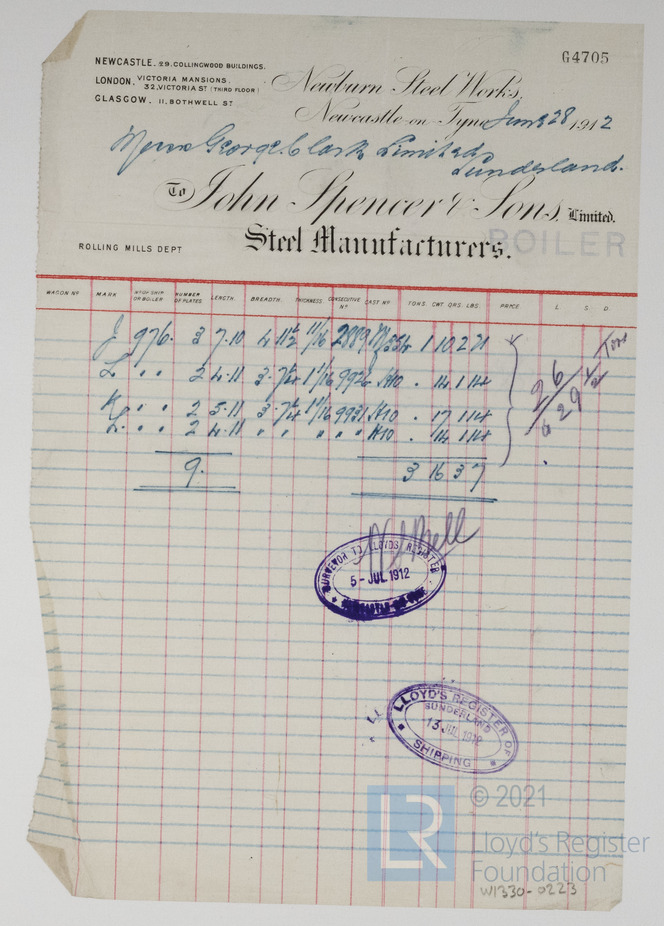 G4705
NEWCASTLE. 29. COLLINGWOOD BUILDINGS.
LONDON. VICTORIA MANSIONS.
32, VICTORIA ST (THIRD FLOOR)
GLASGOW. 11, BOTHWELL ST
Newburn Steel Works,
Newcastle-on-Tyne June 28 1912
Messrs George Clark Limited,
Sunderland.
To John Spencer & Sons, Limited.
Steel Manufacturers.
BOILER
ROLLING MILLS DEPT
WAGON Nº MARK NUMBER OF PLATES LENGTH. BREADTH. THICKNESS. CONSECUTIVE Nº CAST Nº TONS CWT QRS. LBS. PRICE L S. D.
J 976. 3 7.10 4 11½ 11/16 2889 1 10 2 21
L " " 2 4.11 3.7¼ 1 1/16 9926 . 14 1 14
K " " 2 5.11 3.7¼ 1 1/16 9931 . 17 1 14
L. " " 2 4.11 " " " " . 14 1 14
9. 3 16 3 7
26
629
Ton
SURVEYOR TO LLOYDS REGISTER
5 - JUL 1912
LLOYD'S REGISTER OF
SUNDERLAND
13 JUL 1912
SHIPPING
LR
© 2021
Lloyd's Register
Foundation
W1330-0223